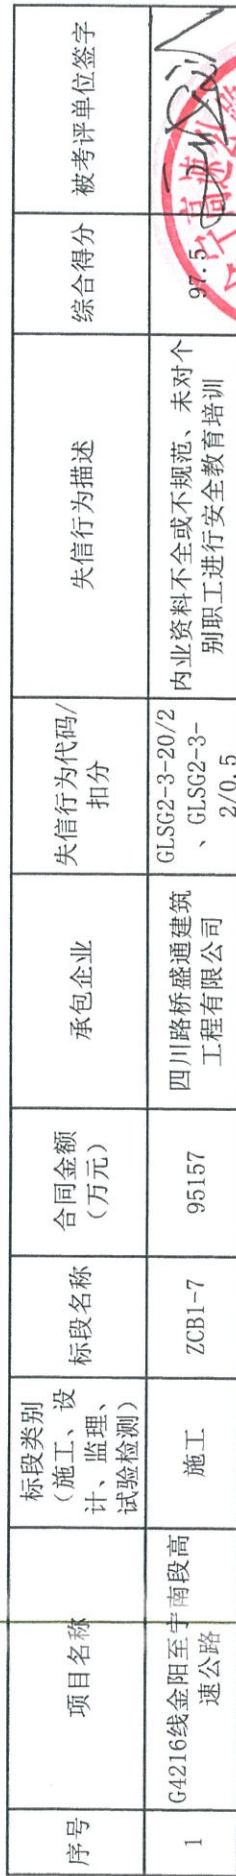 序号
项目名称
标段类别
（施工、设
计、监理、
试验检测）
标段名称
合同金额
（万元）
承包企业
失信行为代码/
扣分
失信行为描述
综合得分
被考评单位签字
1
G4216线金阳至宁南段高
速公路
施工
ZCB1-7
95157
四川路桥盛通建筑
工程有限公司
GLSG2-3-20/2
、GLSG2-3-
2/0.5
内业资料不全或不规范、未对个
别职工进行安全教育培训
97.5
高速公路